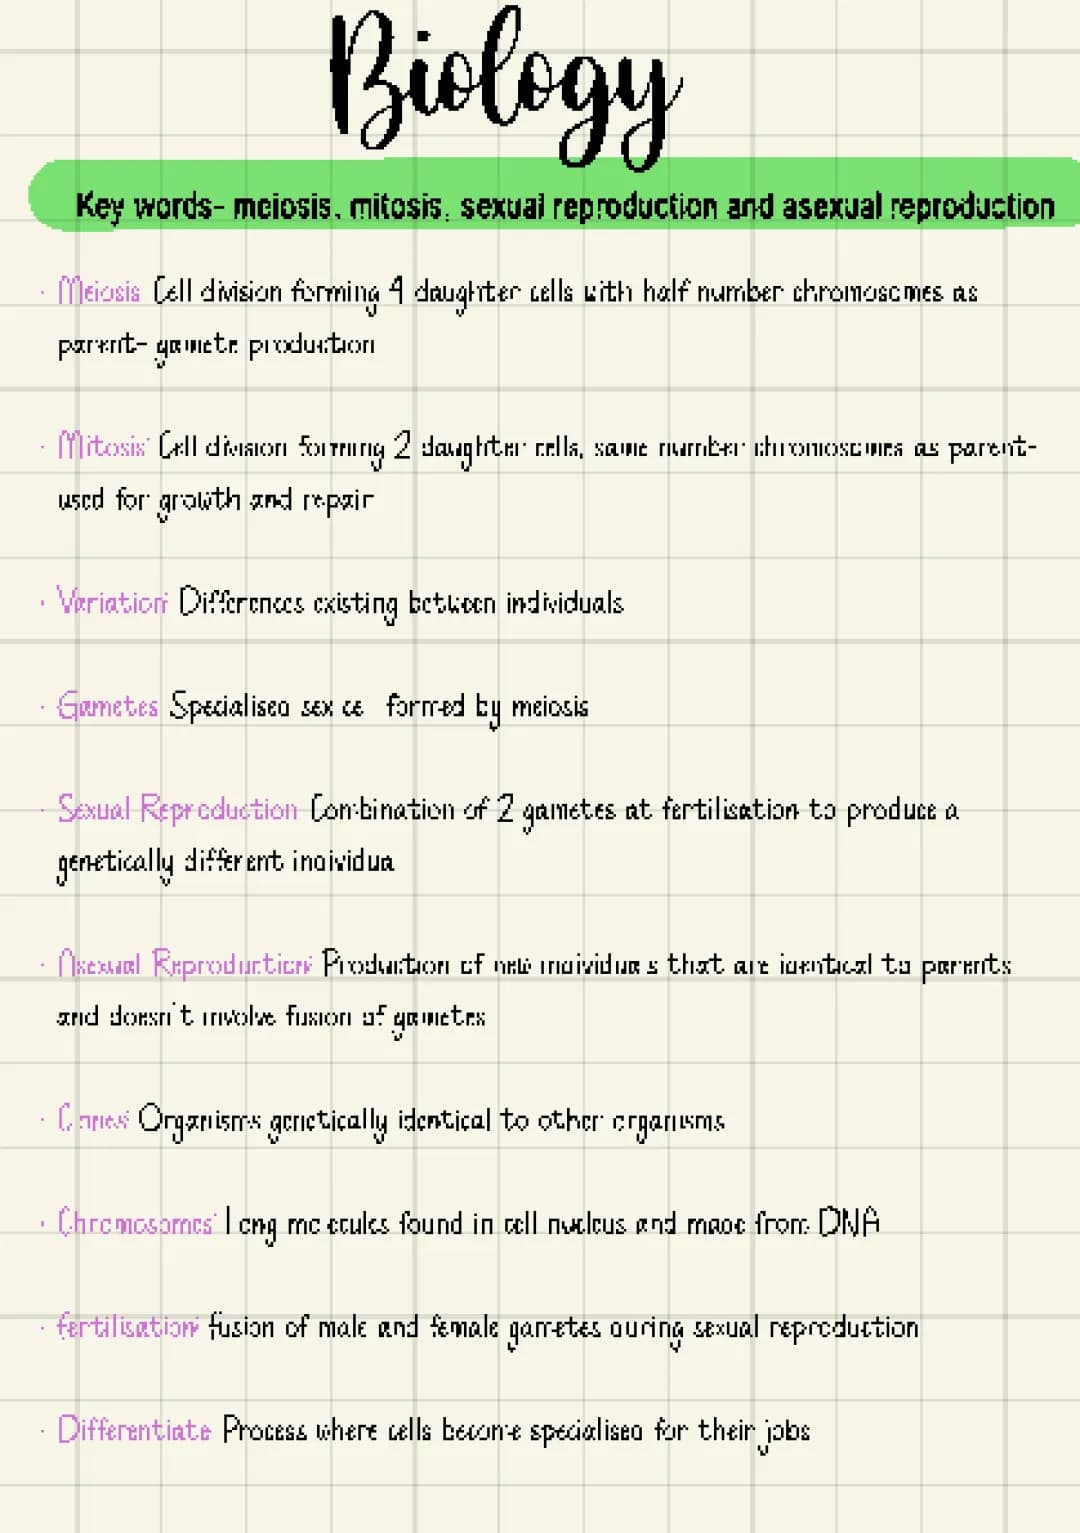 Biology
Key words- meiosis, mitosis, sexual reproduction and asexual reproduction
· Meiosis: Cell division forming 4 daughter cells with half number chromosomes as
parent- gamete production
· Mitosis: Cell division forming 2 daughter cells, same number chromosomes as parent-
used for growth and repair
· Variation: Differences existing between individuals
· Gametes: Specialised sex cells formed by meiosis
· Sexual Reproduction: Combination of 2 gametes at fertilisation to produce a
genetically different individual
· Asexual Reproduction: Production of new individuals that are identical to parents
and doesn't involve fusion of gametes
· Clones: Organisms genetically identical to other organisms
· Chromosomes: Long molecules found in cell nucleus and made from DNA
· fertilisation: fusion of male and female gametes during sexual reproduction
· Differentiate: Process where cells become specialised for their jobs